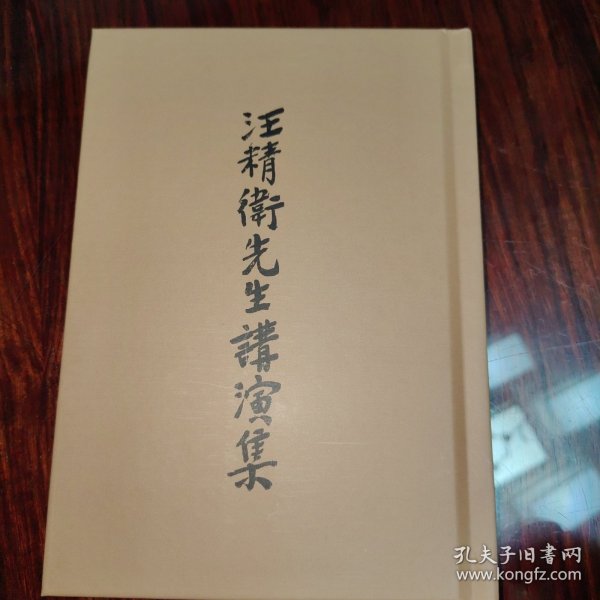 汪精衛先生講演集
孔夫子旧书网
www.kongfz.com